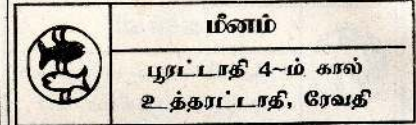 மீனம்
பூரட்டாதி 4~ம் கால்
உத்தரட்டாதி, ரேவதி